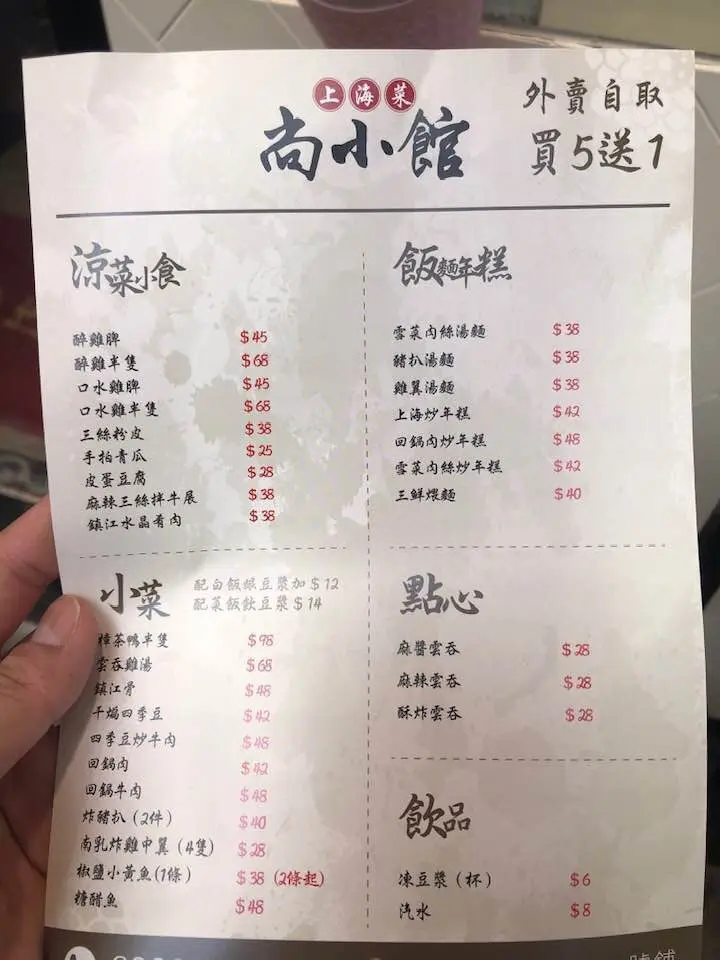 上海菜
尚小館
外賣自取
買5送1
涼菜小食
醉雞脾 $45
醉雞半隻 $68
口水雞脾 $45
口水雞半隻 $68
三絲粉皮 $38
手拍青瓜 $25
皮蛋豆腐 $28
麻辣三絲拌牛展 $38
鎮江水晶肴肉 $38
飯麵年糕
雪菜肉絲湯麵 $38
豬扒湯麵 $38
雞翼湯麵 $38
上海炒年糕 $42
回鍋肉炒年糕 $48
雪菜肉絲炒年糕 $42
三鮮煨麵 $40
小菜
配白飯跟豆漿加$12
配菜飯飲豆漿$14
樟茶鴨半隻 $98
雲吞雞湯 $68
鎮江骨 $48
干煸四季豆 $42
四季豆炒牛肉 $48
回鍋肉 $42
回鍋牛肉 $48
炸豬扒(2件) $40
南乳炸雞中翼(4隻) $28
椒鹽小黃魚(1條) $38 (2條起)
糖醋魚 $48
點心
麻醬雲吞 $28
麻辣雲吞 $28
酥炸雲吞 $28
飲品
凍豆漿(杯) $6
汽水 $8